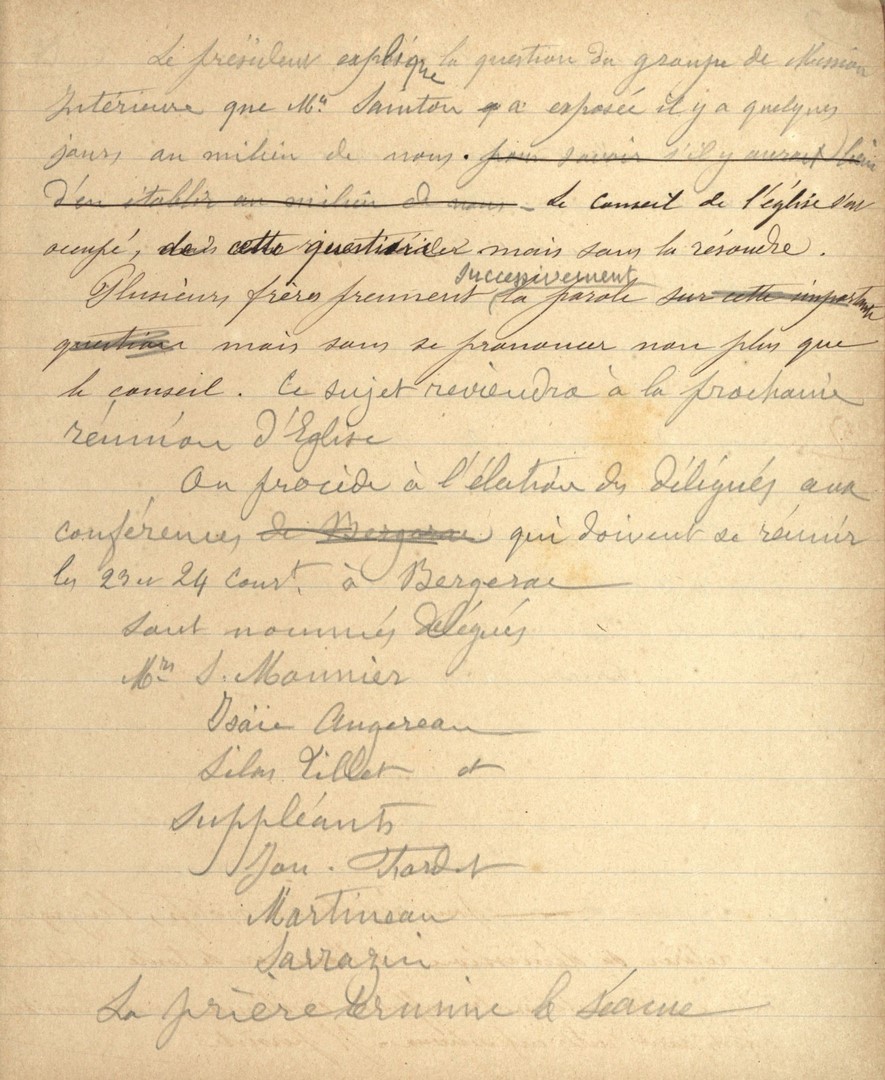 Le président explique la question du groupe de Mission
Intérieure que Mr. Sainton a exposée il y a quelques
jours au milieu de nous. pour savoir s'il y aurait lieu
d'en établir au milieu de nous - Le conseil de l'église s'en
occupé, de cette question mais sans la résoudre.
successivement
Plusieurs frères prennent la parole sur cette importante
question mais sans se prononcer non plus que
le conseil. Ce sujet reviendra à la prochaine
réunion d'Eglise
On procède à l'élection des délégués aux
conférences de Bergerac qui doivent se réunir
les 23 et 24 court. à Bergerac
Sont nommés délégués
Mrs S. Monnier
Isaïe Angereau
Silas Tillet et
Suppléants
Jon. Chardet
Martineau
Sarrazin
La prière termine la séance